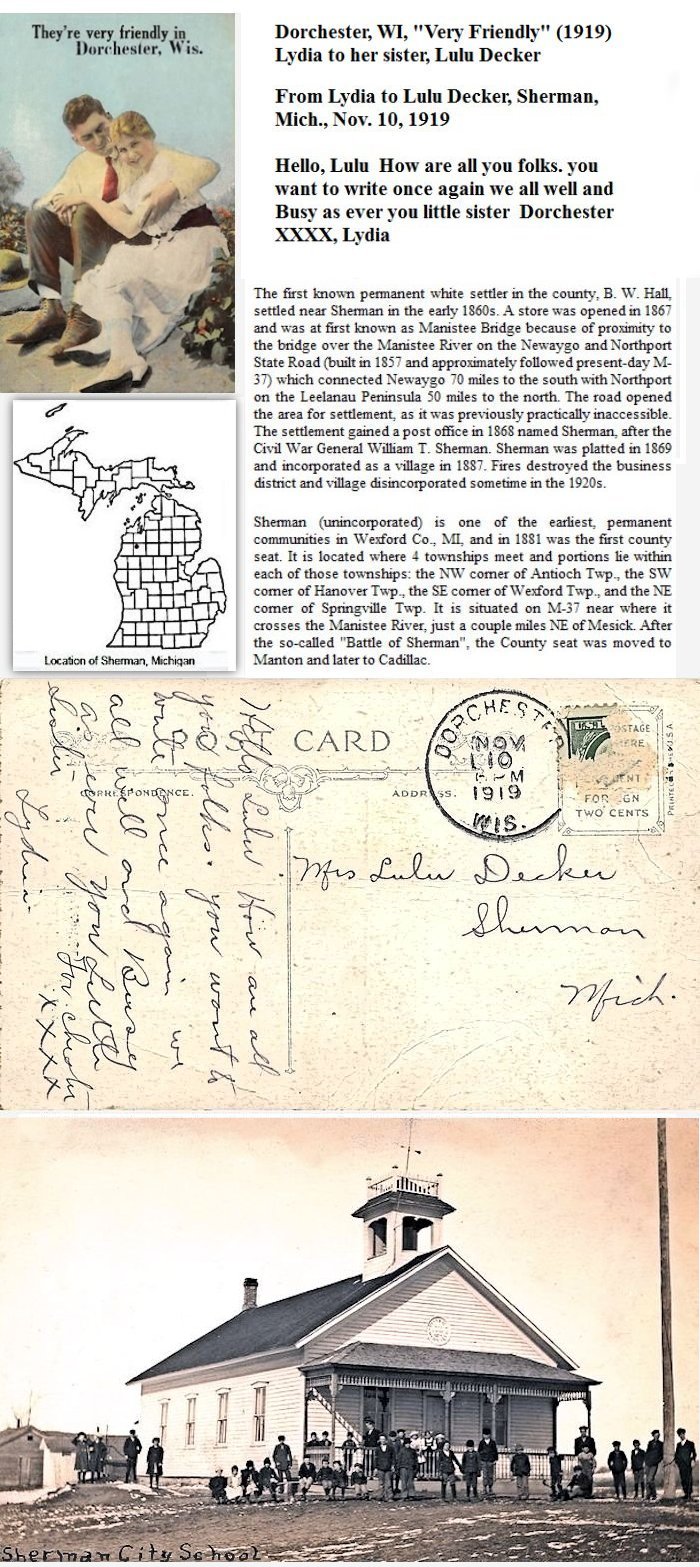 They're very friendly in
Dorchester, Wis.
Dorchester, WI, "Very Friendly" (1919)
Lydia to her sister, Lulu Decker
From Lydia to Lulu Decker, Sherman,
Mich., Nov. 10, 1919
Hello, Lulu  How are all you folks. you
want to write once again we all well and
Busy as ever you little sister  Dorchester
XXXX, Lydia
The first known permanent white settler in the county, B. W. Hall,
settled near Sherman in the early 1860s. A store was opened in 1867
and was at first known as Manistee Bridge because of proximity to
the bridge over the Manistee River on the Newaygo and Northport
State Road (built in 1857 and approximately followed present-day M-
37) which connected Newaygo 70 miles to the south with Northport
on the Leelanau Peninsula 50 miles to the north. The road opened
the area for settlement, as it was previously practically inaccessible.
The settlement gained a post office in 1868 named Sherman, after the
Civil War General William T. Sherman. Sherman was platted in 1869
and incorporated as a village in 1887. Fires destroyed the business
district and village disincorporated sometime in the 1920s.
Sherman (unincorporated) is one of the earliest, permanent
communities in Wexford Co., MI, and in 1881 was the first county
seat. It is located where 4 townships meet and portions lie within
each of those townships: the NW corner of Antioch Twp., the SW
corner of Hanover Twp., the SE corner of Wexford Twp., and the NE
corner of Springville Twp. It is situated on M-37 near where it
crosses the Manistee River, just a couple miles NE of Mesick. After
the so-called "Battle of Sherman", the County seat was moved to
Manton and later to Cadillac.
Location of Sherman, Michigan
POST CARD
CORRESPONDENCE.
ADDRESS.
Hello Lulu How are all
you folks. you want to
write once again we
all well and Busy
as ever you Little
Sister Dorchester
Lydia xxxx
DORCHESTER
NOV
10
M
1919
WIS.
POSTAGE
HERE
FOREIGN
TWO CENTS
PRINTED IN U.S.A
Mrs Lulu Decker
Sherman
Mich.
Sherman City School